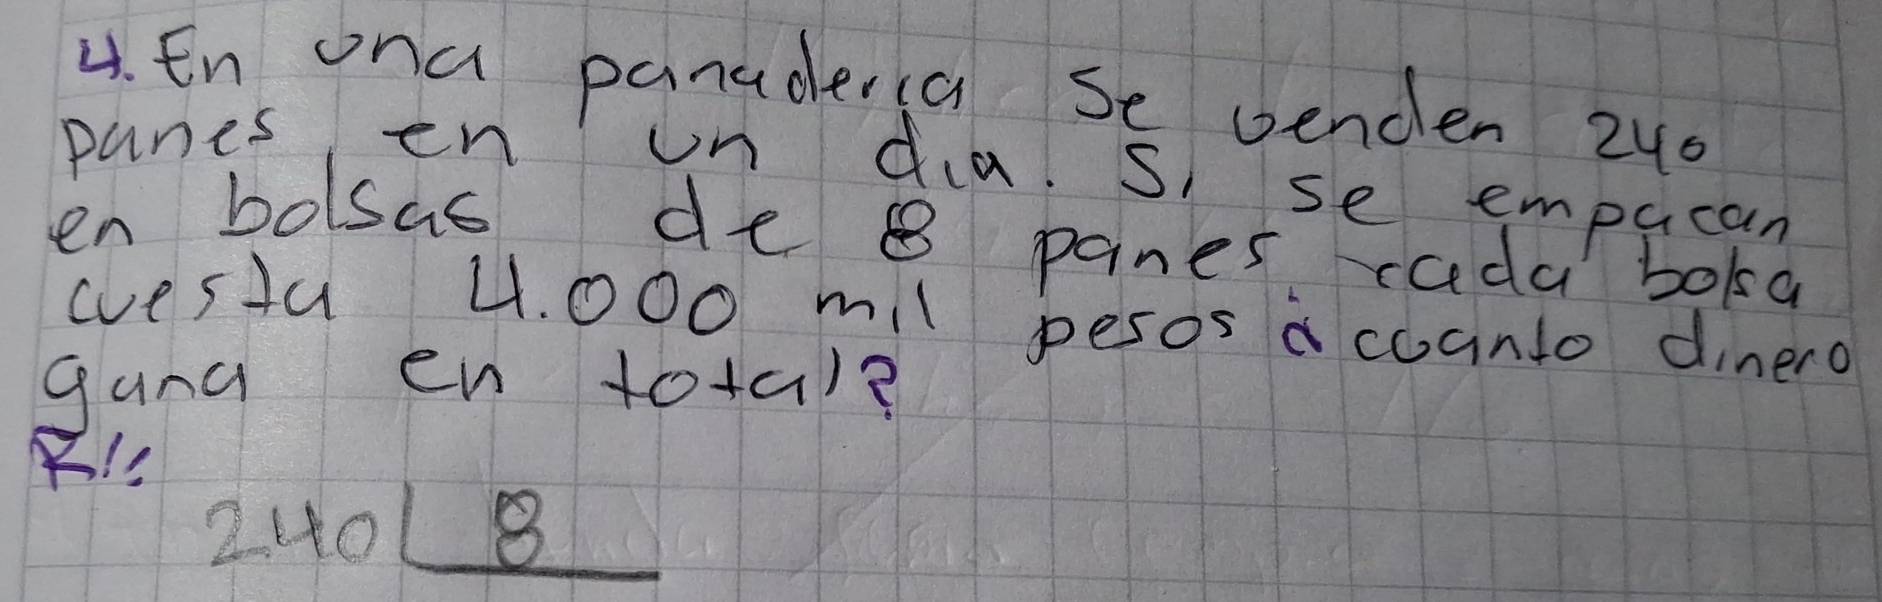 4. En una panaderia se venden 240
panes en un dia. Si se empacan
en bolsas de 8 panes cada bolsa
cuesta 4.000 mil pesos ¿a cuanto dinero
gana en total?
R//:
240 8